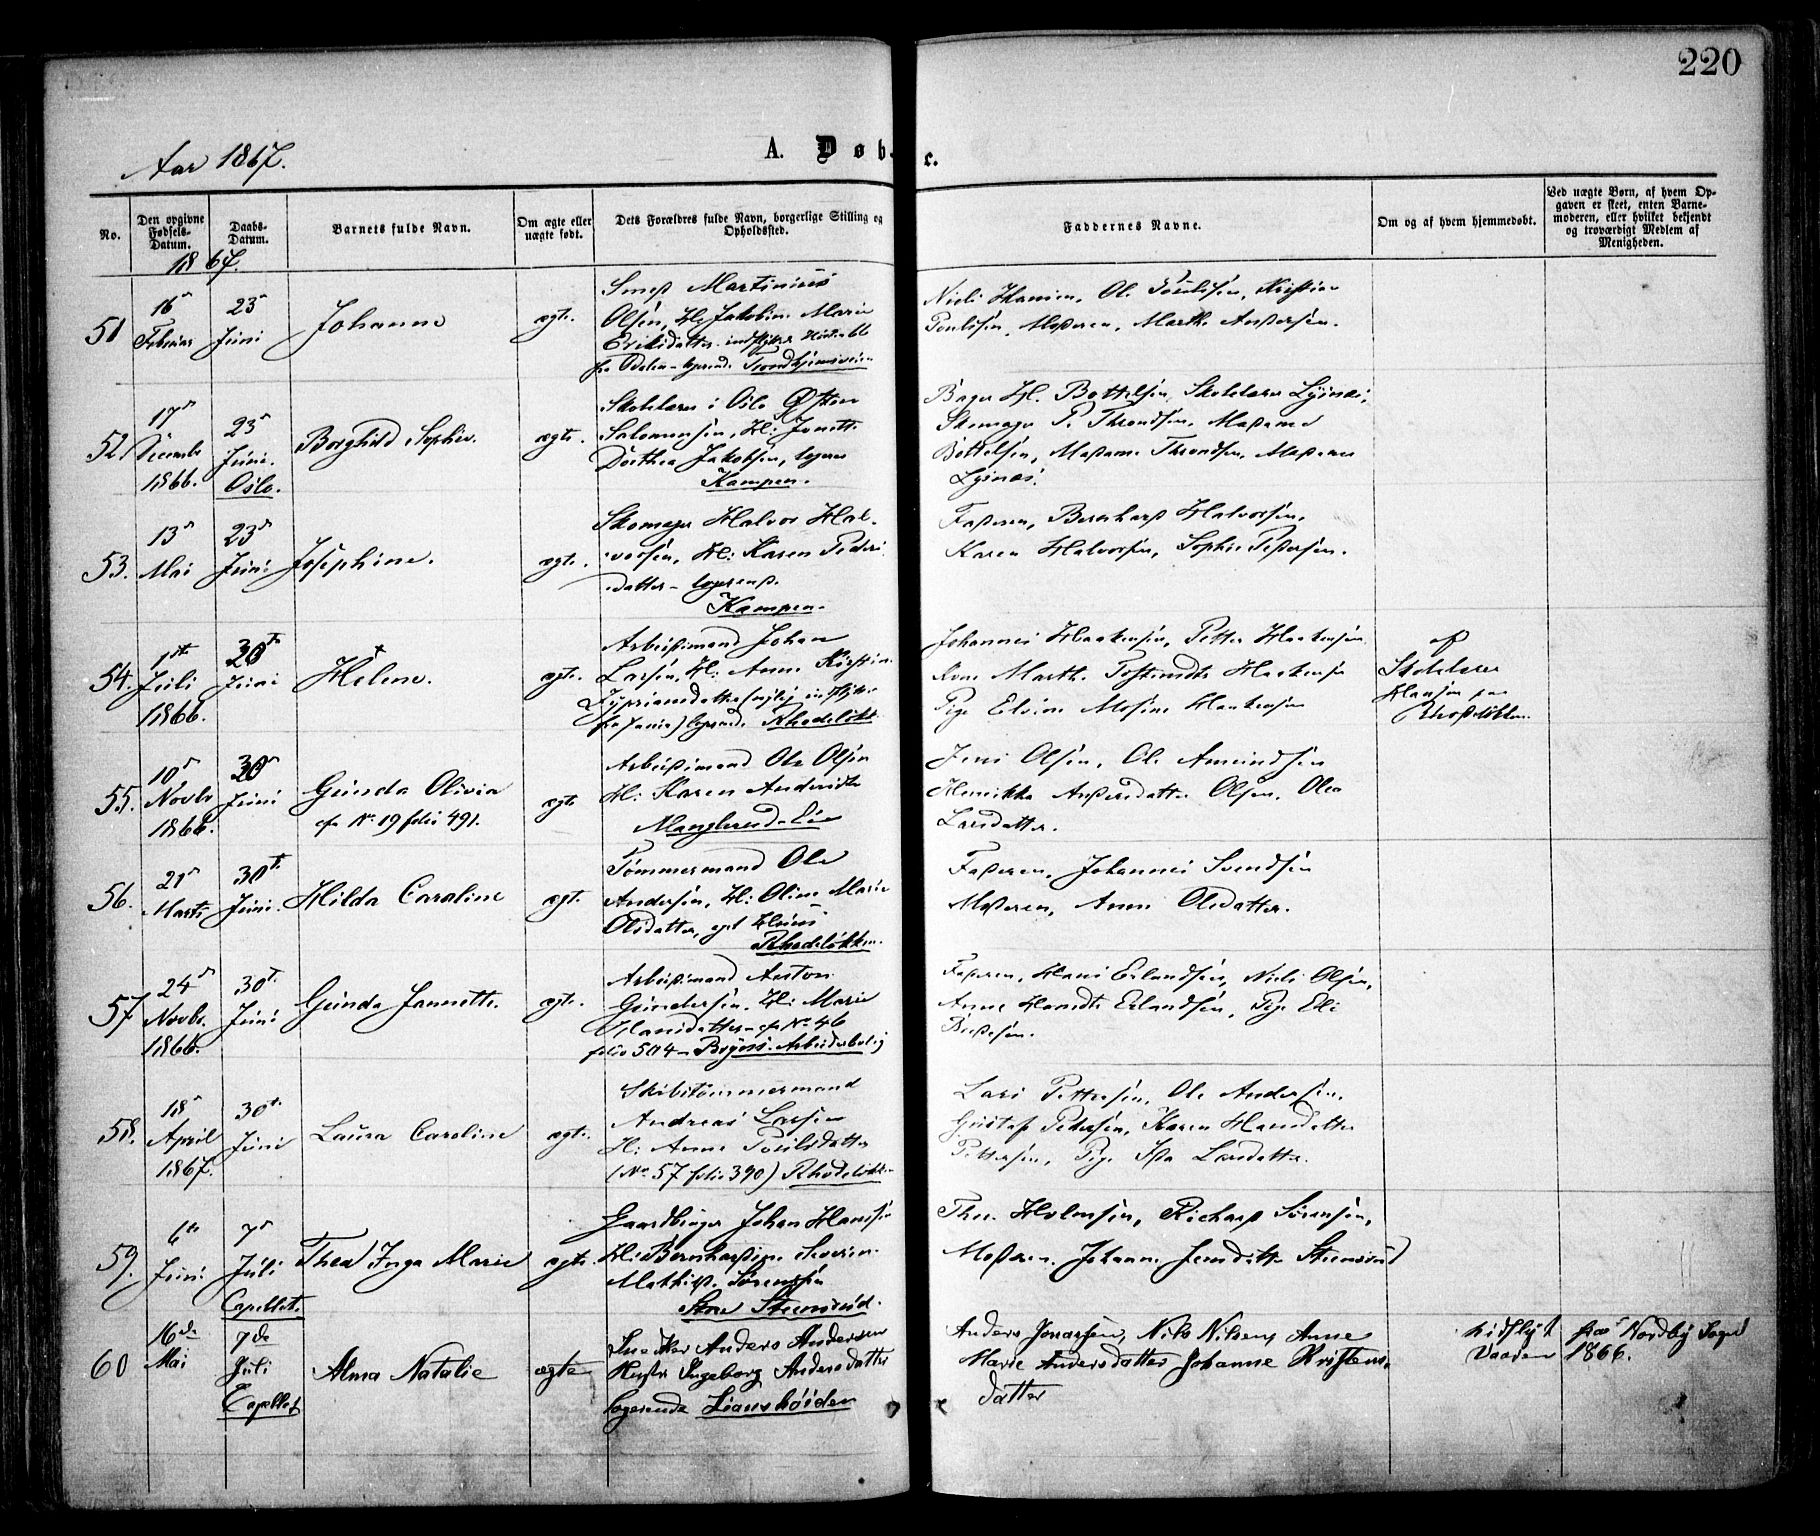 220
Aar 1867.
A. Døbte.
No.
Den opgivne Fødsels-Datum.
Daabs-Datum.
Barnets fulde Navn.
Om ægte eller uægte født.
Dets Forældres fulde Navn, borgerlige Stilling og Opholdssted.
Faddernes Navne.
Om og af hvem hjemmedøbt.
Ved uægte Børn, af hvem Opgaven er skeet, enten Barnemoderen, eller hvilket bekjendt og troværdigt Medlem af Menigheden.
1867.
51
16
Februar
23
Juni
Johanne
ægte.
Smed Martinius
Olsen, H: Jakobine Marie
Eriksdatter
logerende Trondhjemsveien
Niels Hansen, Ole Poulsen, Kristian
Poulsen, Moderen, Marthe Andersen.
52
17
Decembr
1866.
23
Juni.
Oslo.
Borghild Sophie.
ægte.
Skolelærer i Oslo Østen
Salomonsen, H: Jonette
Dorthea Jakobsen, logere
Kampen.
Bager H. Bottelsen, Skolelærer Lysnæs,
Skomager P. Throndsen, Madame
Bottelsen, Madame Throndsen, Madame
Lysnæs.
53.
13
Mai
23
Juni
Josephine.
ægte.
Skomager Halvor Halvorsen, H: Karen Pedersdatter - logerend.
Kampen.
Faderen, Bernhard Halvorsen,
Karen Halvorsen, Sophie Pedersen.
54.
1ste
Juli
1866.
30te
Juni
Helene.
ægte.
Arbeidsmand Johan
Larsen, H: Anne Kirstine
logerende Rhodeløkk.
Johannes Haakensen, Petter Haakensen
Kone Marthe Haakensen
Pige Elvine Mosine Haakensen
af
Skolelærer
Hansen paa
Rhodeløkken.
55.
10
Novbr
1866.
30
Juni
Gunda Olivia
cfr No 19 folio 491.
ægte
Arbeidsmand Ole Olsen
H: Karen Andersdtr
Manglerud Eie
Jens Olsen, Ole Amundsen
Henrikke Andersdatter Olsen, Olea
Larsdatter.
56.
21
Marts
30te
Juni.
Hilda Caroline
ægte.
Tømmermand Ole
Andersen, H: Oline Marie
Olsdatter, eget Huus
Rhodeløkken.
Faderen, Johannes Svendsen
Moderen, Anne Olsdatter.
57
24
Novbr.
1866.
30t.
Juni
Gunda Jannette.
ægte.
Arbeidsmand Anton
Gundersen, H: Marie
Hansdatter - cfr No 46
folio 504 - Bryns Arbeiderbolig
Faderen, Hans Erlandsen, Niels Olsen,
Anne Hansdtr Erlandsen, Pige Eli
58.
18
April
1867.
30te
Juni
Laura Caroline
ægte.
Skibstømmermand
Andreas Larsen
H: Anne Poulsdatter
(No 57 folio 390) Rhodeløkken
Lars Pettersen, Ole Andersen,
Gustaf Petersen, Karen Hansdatter
Pettersen, Pige Larsdatter.
59.
6te
Juni
7
Juli
Capellet.
Thea Inga Marie
ægte.
Gaardbruger Johan Hansen
H: Bernhardine Severine
Mathilde Sørenssen
Store Steensrud.
Theo. Holmsen, Richard Sørensen,
Moderen, Johanne Jensdatter Steensrud
60
16de
Mai
7de
Juli
Capellet
Alma Natalie
ægte
Snedker Anders Andersen
Hustr Ingeborg Andersdatter
logerende Lianshøiden
Anders Jonassen, Nils Nilsen, Anne
Marie Andersdatter Johanne Kristensdatter
Indflyt fra Nordby Sogn
Vaaren 1866.